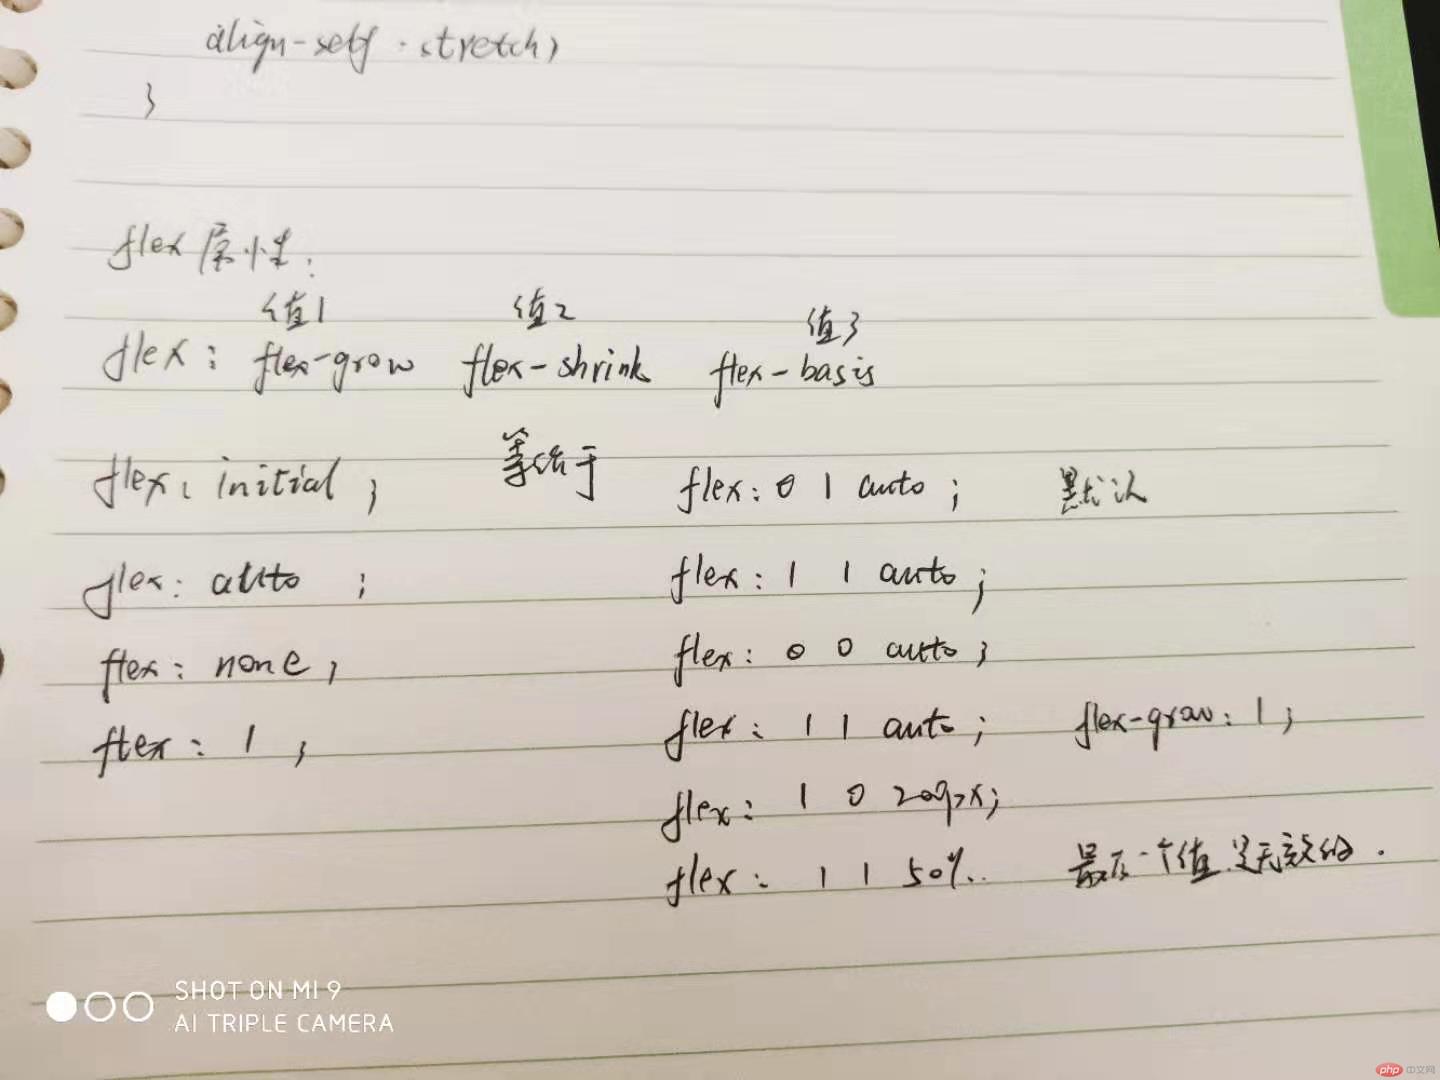 align-self:stretch;
}
flex属性:
值1 值2 值3
flex: flex-grow flex-shrink flex-basis
flex: initial; 等价于 flex: 0 1 auto; 默认
flex: auto; flex: 1 1 auto;
flex: none; flex: 0 0 auto;
flex: 1; flex: 1 1 auto; flex-grow: 1;
flex: 1 0 200px;
flex: 1 1 50%. 最后一个值是无效的.
SHOT ON MI 9
AI TRIPLE CAMERA
php 中文网